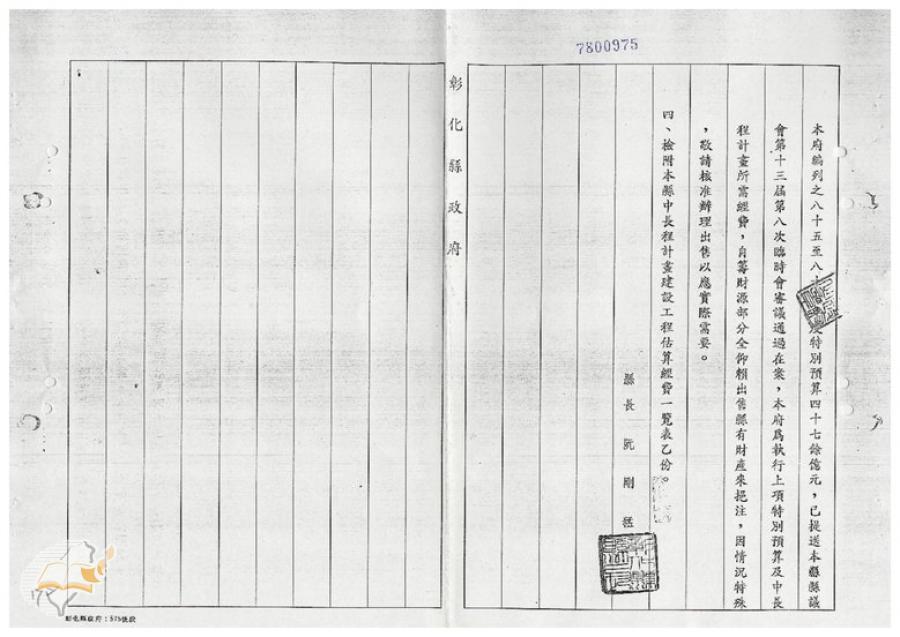 7800975
本府編列之八十五至八特別預算四十七餘億元，已提送本縣縣議
會第十三屆第八次臨時會審議通過在案，本府為執行上項特別預算及中長
程計畫所需經費，自籌財源部分全仰賴出售縣有財產來挹注，因情況特殊
，敬請核准辦理出售以應實際需要。
四、檢附本縣中長程計畫建設工程估算經費一覽表乙份。
縣長 阮剛猛
彰化縣政府